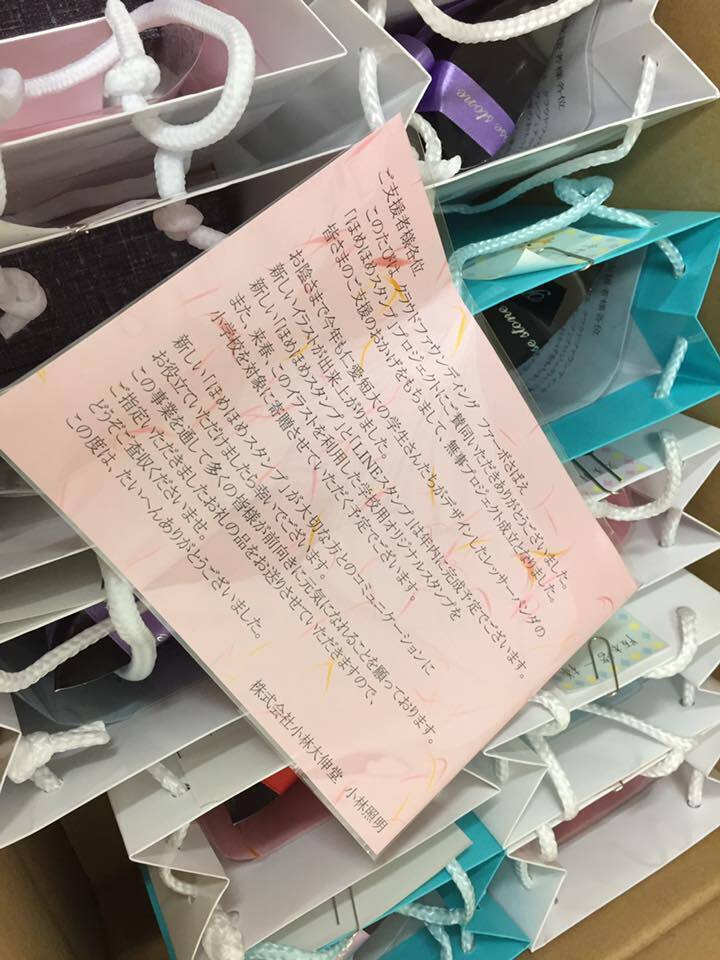 ご支援者様各位
このたびは、クラウドファウンディング ファーボさばえ
「ほめほめスタンプ」プロジェクトにご賛同いただきありがとうございました。
皆さまのご支援のおかげをもちまして、無事プロジェクト成立となりました。
お陰さまで今年も仁愛短大の学生さんたちがデザインしたレッサーパンダの
新しいイラストが出来上がりました。
新しい「ほめほめスタンプ」と「LINEスタンプ」は年内に完成予定でございます。
また、来春、このイラストを利用した学校用オリジナルスタンプを
小学校を対象に寄贈させていただく予定でございます。
新しい「ほめほめスタンプ」が大切な方とのコミュニケーションに
お役立ていただけましたら幸いでございます。
この事業を通して多くの皆様が前向きに元気になれることを願っております。
ご指定いただきましたお礼の品をお送りさせていただきますので、
どうぞご査収くださいませ。
この度は、たいへんありがとうございました。
株式会社小林大伸堂 小林照明
se stone
se stone
様各位